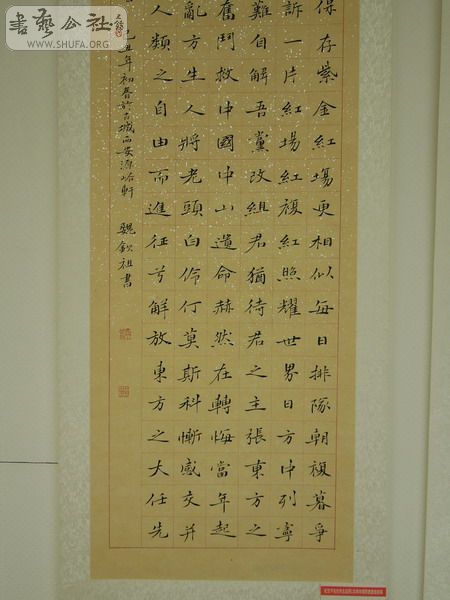 書藝公社
www.SHUFA.org
保存紫金紅場更相似每日排隊朝複暮爭
訴一片紅場紅複紅照耀世界日方中列寧
難自解吾黨改組君猶待君之主張東方之
奮鬥救中國中山遺命赫然在轉悔當年起
亂方生人將老頭白伶仃莫斯科慚感交并
人類之自由而進征兮解放東方之大任先
己丑年初春於古城西安 軒 魏欽祖書